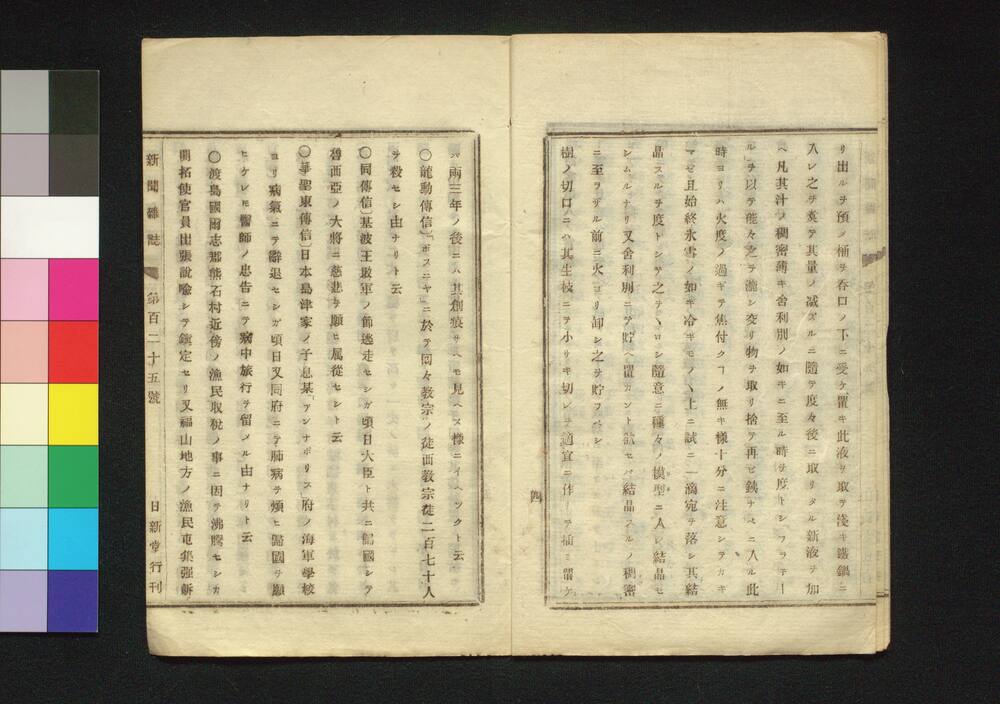 リ出ルヲ預メ桶ヲ呑口ノ下ニ受ケ置キ此液ヲ取テ淺キ鐵鍋ニ
入レ之ヲ煑テ其量ノ減ズルニ隨テ度々後ニ取リタル新液ヲ加
ヘ凡其汁ノ稠密薄キ舍利別ノ如キニ至ル時ヲ度トシフラ子ー
ルヲ以テ能々之ヲ漉シ交リ物ヲ取リ捨テ再ビ銕ナベニ入ル此
時ヨリハ火度ノ過ギテ焦付クヿノ無キ樣十分ニ注意シテカキ
マゼ且始終氷雪ノ如キ冷キモノヽ上ニ試ニ一滴宛ヲ落シ其結
晶スルヲ度トシテ之ヲヽロシ隨意ニ種々ノ模型ニ入レ結晶セ
シムルナリ又舍利別ニテ貯ヘ置カント欲セバ結晶スルノ稠密
ニ至ラザル前ニ火ヨリ卸シ之ヲ貯フベシ
樹ノ切口ニハ其生枝ニテ小リキ切レヲ適宜ニ作リテ插ミ置ケ
四
バ兩三年ノ後ニハ其創痕サヘモ見ヘズ樣ニイヘツクト云
〇龍動傳信〕「ボスニヤ」ニ於テ回々敎宗ノ徒西敎宗徒二百七十人
ヲ殺セシ由ナリト云
〇同傳信〕基波王敗軍ノ節逃走セシガ頃日大臣ト共ニ歸國シテ
魯西亞ノ大將ニ慈悲ヲ願ヒ属從セシト云
〇華聖東傳信〕日本島津家ノ子息某「アンナポリス」府ノ海軍學校
ヨリ病氣ニテ辭退セシガ頃日又同府ニテ肺病ヲ煩ヒ歸國ヲ願
ヒケレモ醫師ノ忠告ニテ病中旅行ヲ留メル由ナリト云
〇渡島國爾志郡熊石村近傍ノ漁民取稅ノ事ニ因テ沸騰セシガ
開拓使官員出張說喩シテ鎭定セリ又福山地方ノ漁民屯集强訴
新聞雜誌 第百二十五號 日新堂行刊